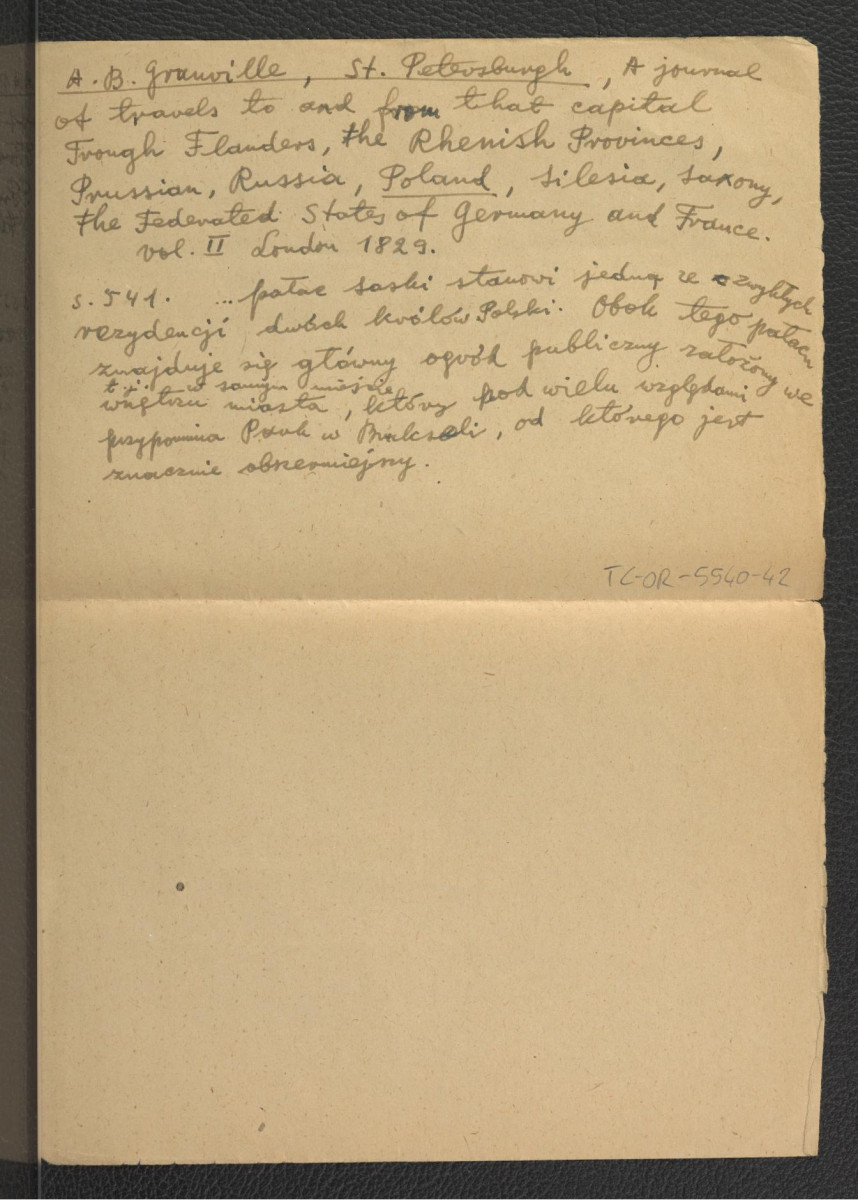 A. B. Granville, St. Petersburgh, A journal
of travels to and from that capital
Trough Flanders, the Rhenish Provinces,
Prussian, Russia, Poland, Silesia, Saxony,
the Federated States of Germany and France.
vol. II London 1829.
s. 541. ... pałac saski stanowi jedną ze zwykłych
rezydencji dwóch królów Polski. Obok tego pałacu
znajduje się główny ogród publiczny założony we
t.j. w samym mieście
wnętrzu miasta, który pod wielu względami
przypomina Park w Brukseli, od którego jest
znacznie obszerniejszy.
TC-OR-5540-42